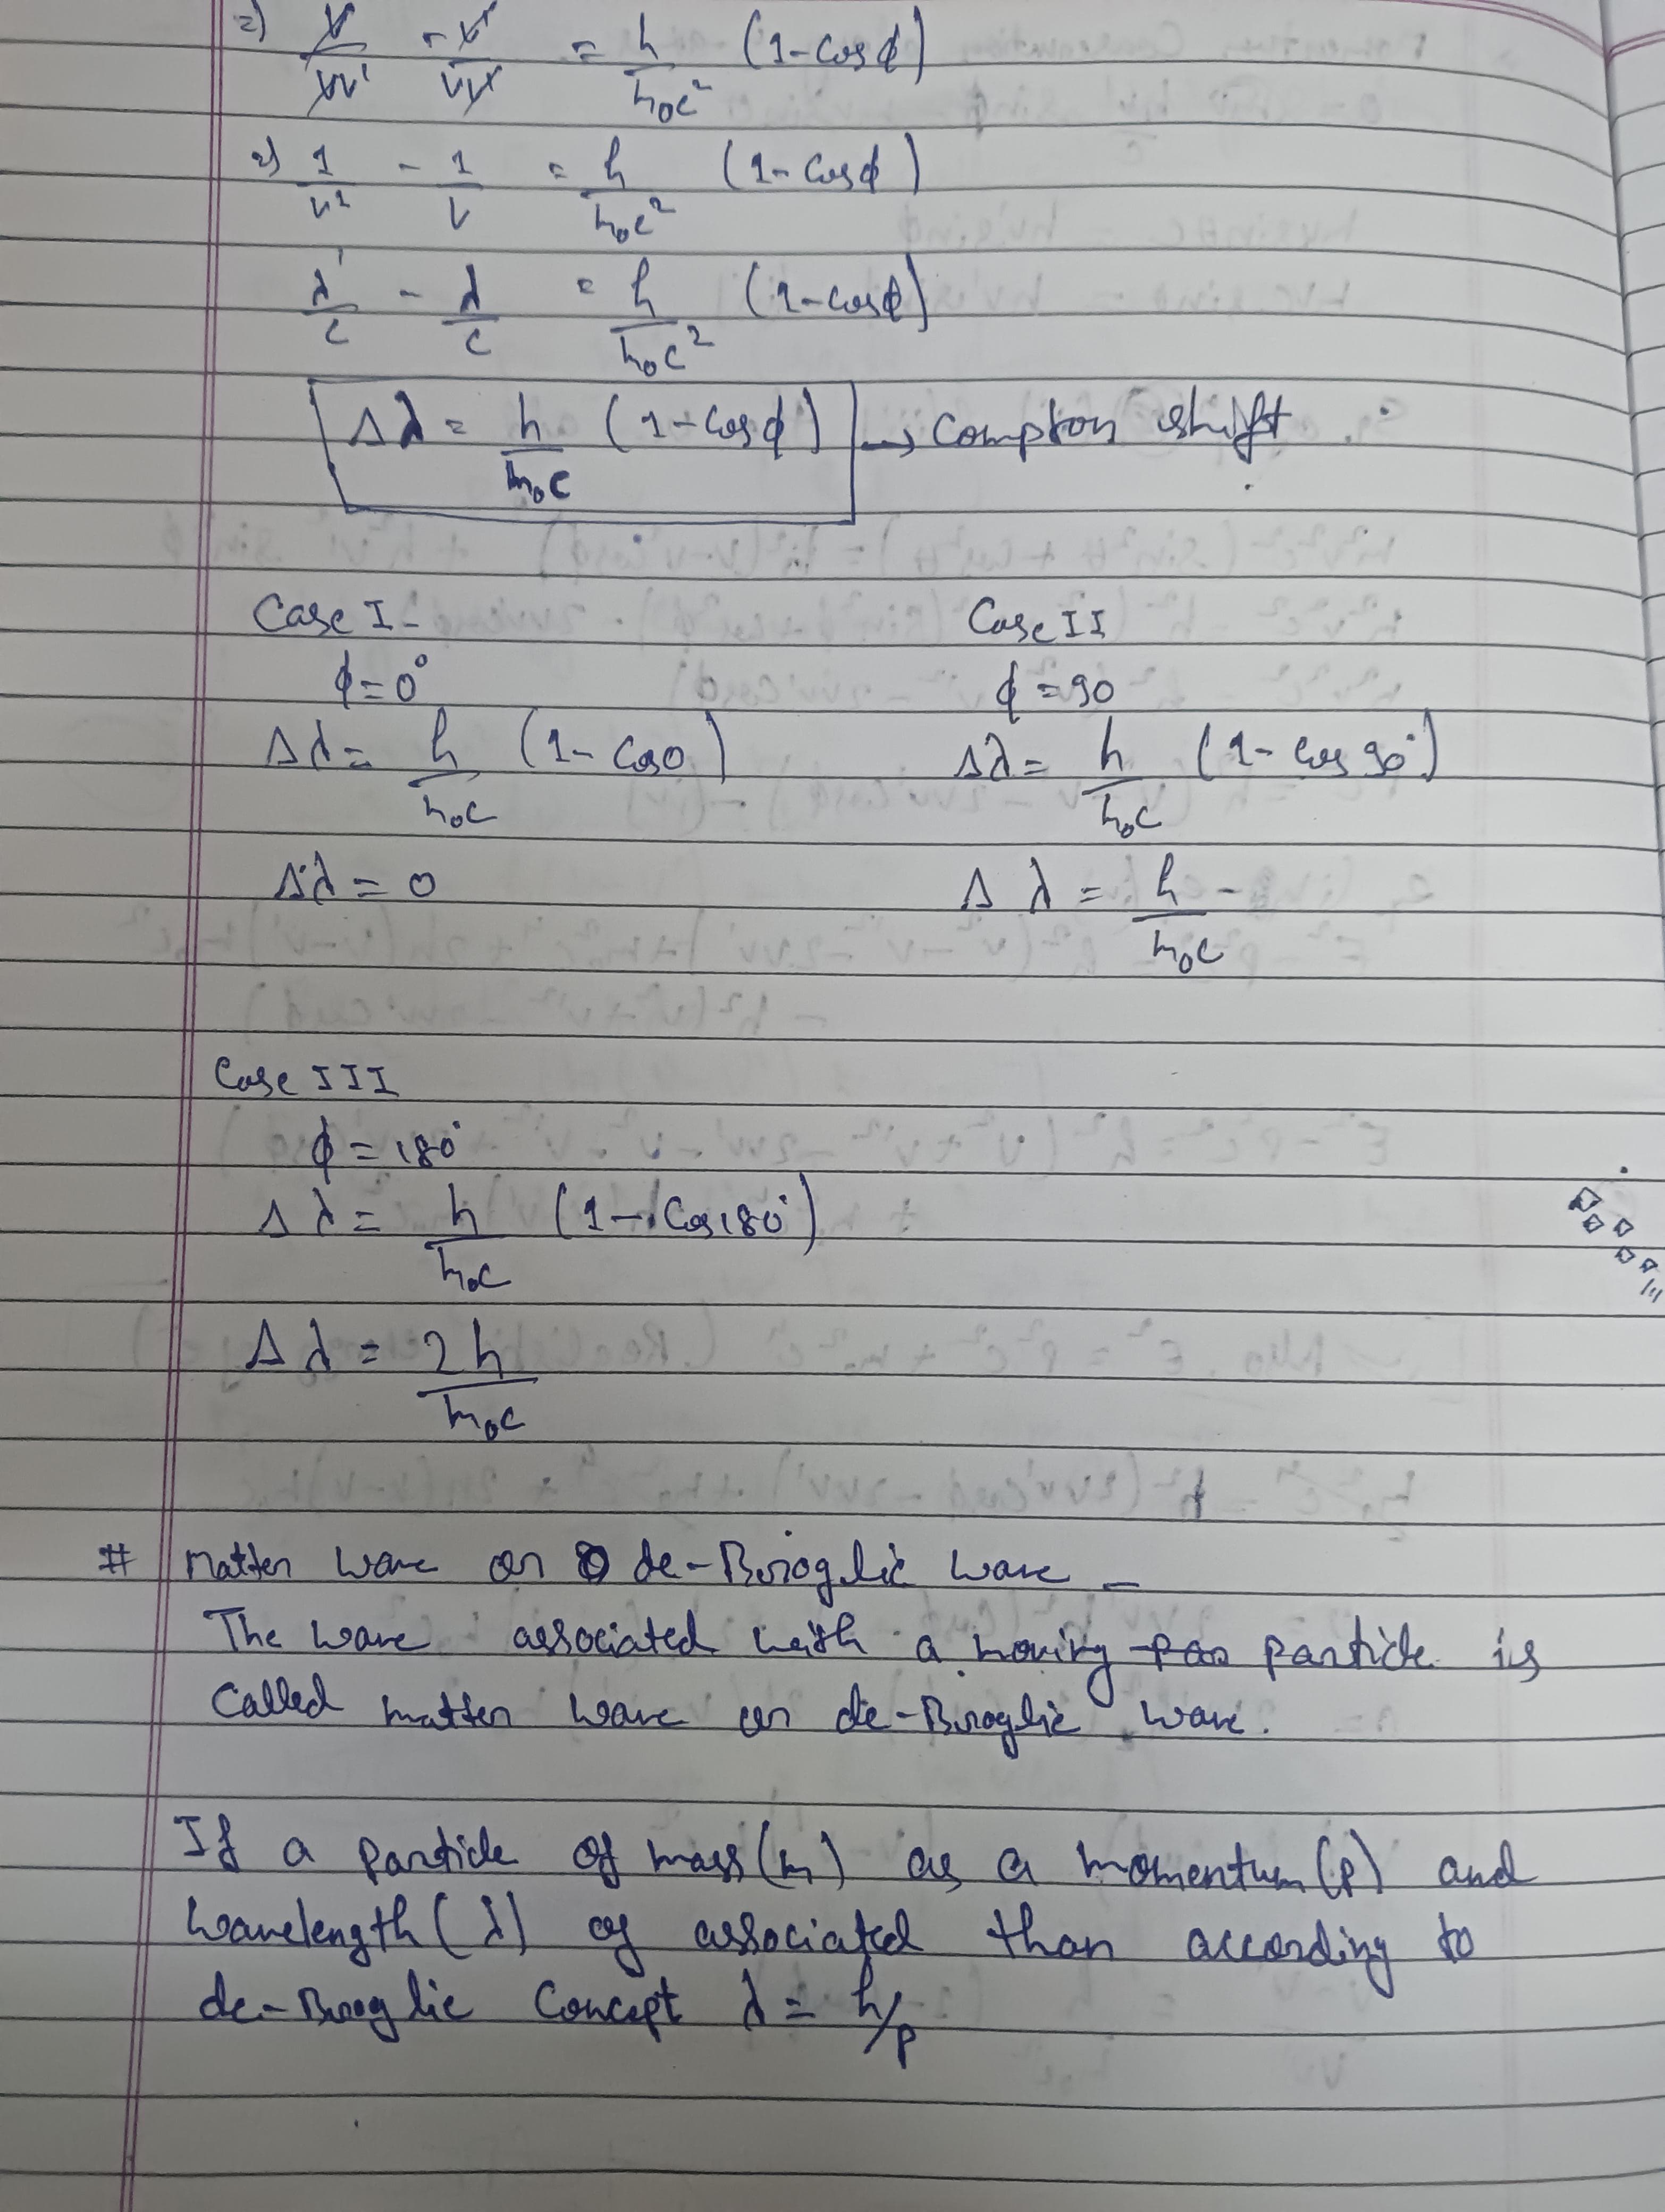 =) ν/νν' - ν'/νν' = h/m₀c² (1-cosϕ)
=) 1/ν' - 1/ν = h/m₀c² (1-cosϕ)
λ'/c - λ/c = h/m₀c² (1-cosϕ)
Δλ = h/m₀c (1-cosϕ) → Compton shift
Case I- Case II
ϕ=0° ϕ=90
Δλ = h/m₀c (1-cos0) Δλ = h/m₀c (1-cos90°)
Δλ = 0 Δλ = h/m₀c -
Case III
ϕ = 180°
Δλ = h/m₀c (1-cos180°)
Δλ = 2h/m₀c
# matter wave or de-Broglie wave -
The wave associated with a moving particle is
called matter wave or de-Broglie wave.
If a particle of mass(m) as a momentum(p) and
wavelength(λ) of associated than according to
de-Broglie concept λ = h/p